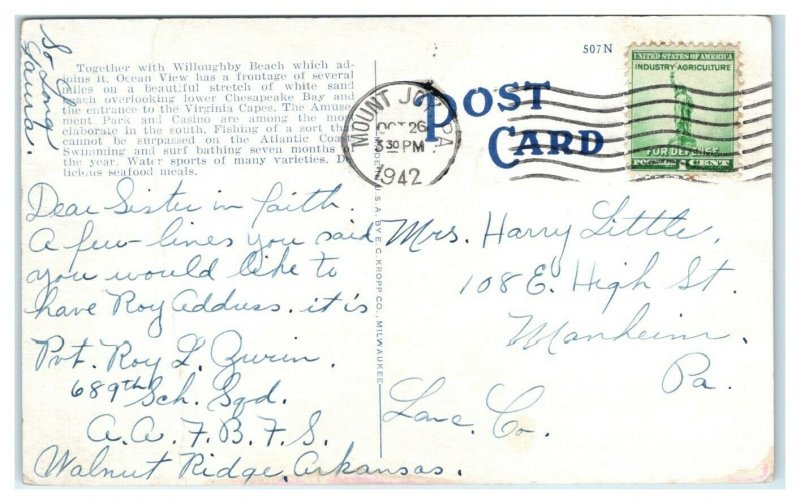 507N
So Long
Laura.
Together with Willoughby Beach which ad-
joins it, Ocean View has a frontage of several
miles on a beautiful stretch of white sand
beach overlooking lower Chesapeake Bay and
the entrance to the Virginia Capes. The Amuse-
ment Park and Casino are among the most
elaborate in the south. Fishing of a sort that
cannot be surpassed on the Atlantic Coast.
Swimming and surf bathing seven months of
the year. Water sports of many varieties. De-
licious seafood meals.
POST
CARD
MOUNT JOY, PA.
OCT 26
3 30 PM
1942
UNITED STATES OF AMERICA
INDUSTRY-AGRICULTURE
FOR DEFENSE
POSTAGE 1 CENT
Dear Sister in faith.
A few lines you said
you would like to
have Roy Address. it is
Pvt. Roy L. Zurin.
689th Sch. Sqd.
A.A.F.B.F.S.
Walnut Ridge, Arkansas.
U.S.A. BY E. C. KROPP CO., MILWAUKEE
Mrs. Harry Little,
108 E. High St.
Manheim.
Pa.
Lanc. Co.